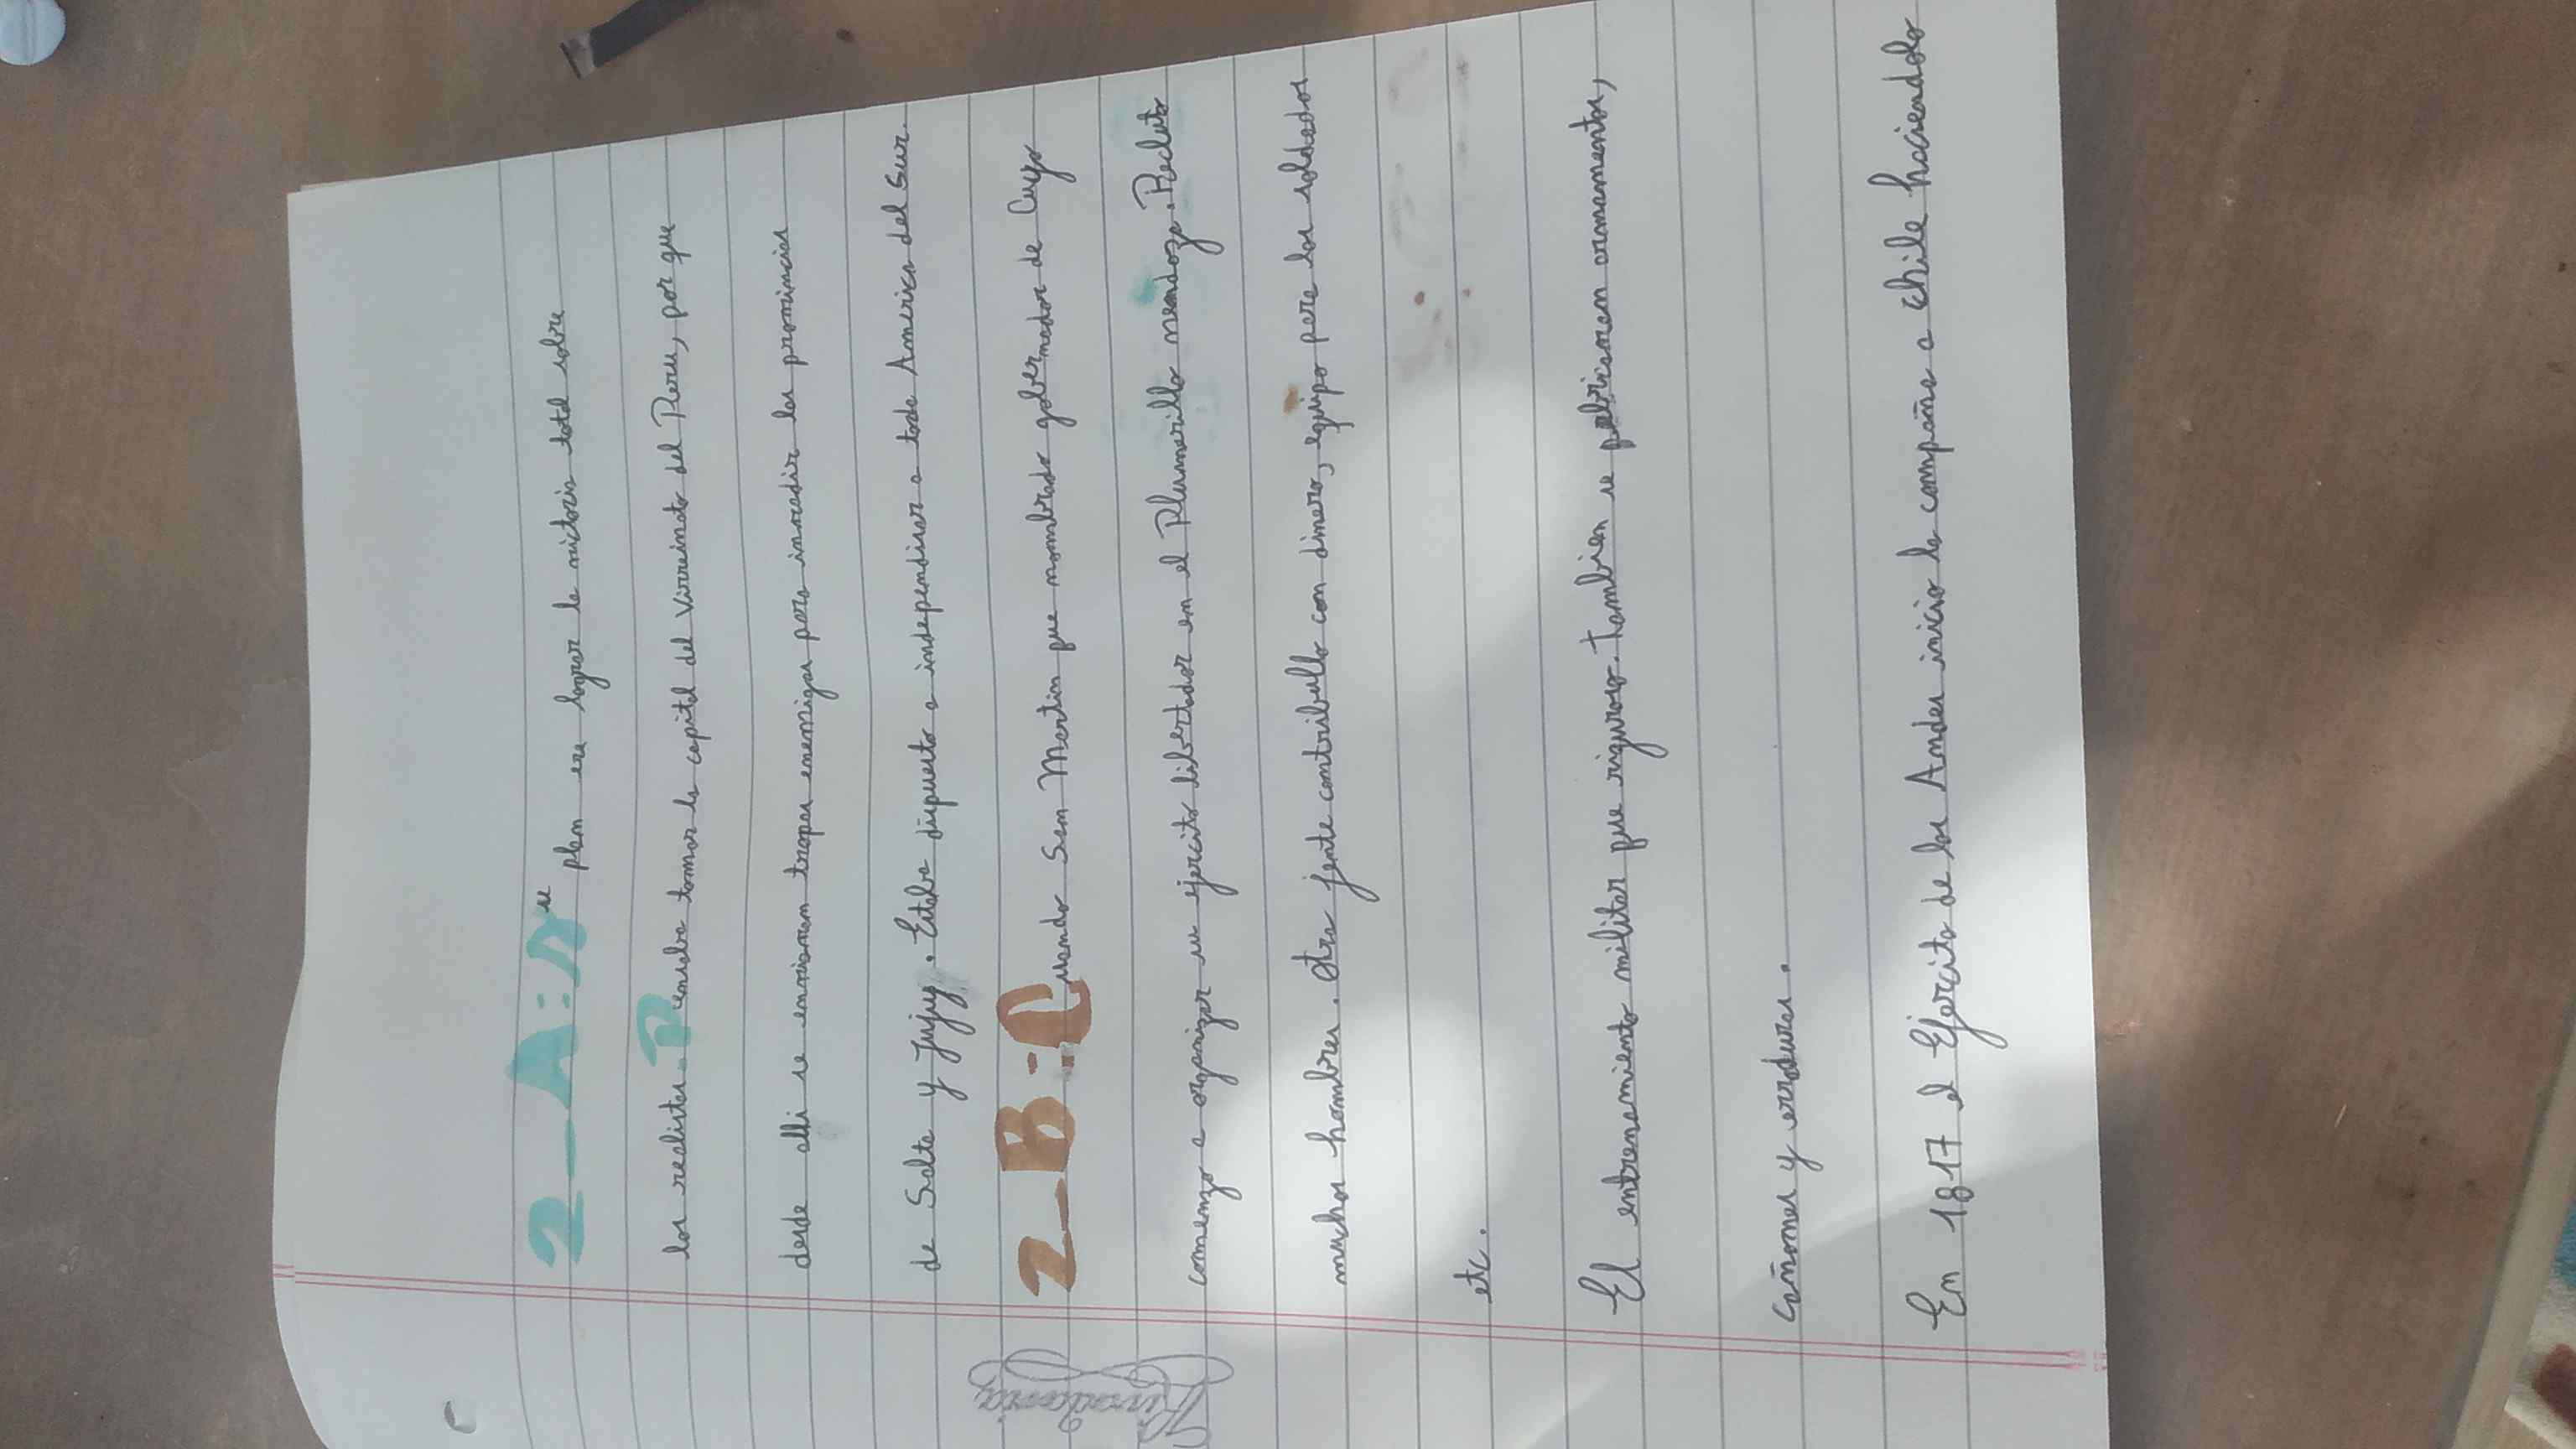 2_A: Su plan era lograr la victoria total sobre
los realistas. Pensaba tomar la capital del Virreinato del Peru, por que
desde alli se enviaron tropas enemigas para invadir las provincias
de Salta y Jujuy. Estaba dispuesto a independizar a toda America del Sur.
2_B: Cuando San Martin fue nombrado gobernador de Cuyo
comenzo a organizar su ejercito libertador en el Plumerillo mendoza. Recluto
muchos hombres. Otra jente contribullo con dinero, equipo para los soldados
etc.
El entrenamiento militar fue riguroso. Tambien se fabricaron armamentos,
cañones y erraduras.
En 1817 el Ejercito de los Andes inicio la campaña a chile haciendo
Rivadavia